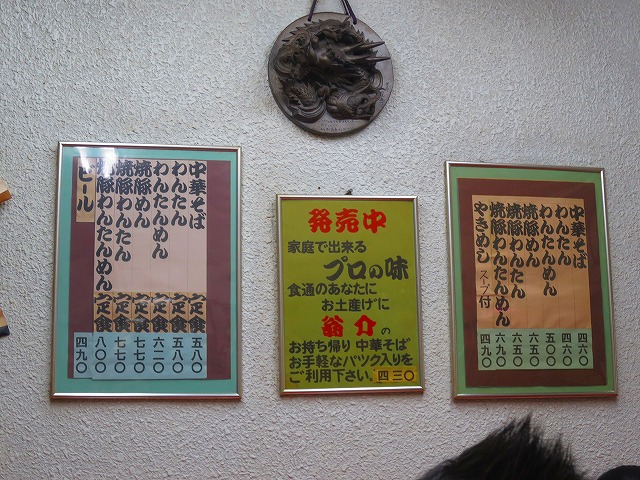 中華そば 定食 五八〇
わんたん 定食 五八〇
わんたんめん 定食 六二〇
焼豚めん 定食 七七〇
焼豚わんたん 定食 七七〇
焼豚わんたんめん 定食 八〇〇
ビール 四九〇
発売中
家庭で出来る
プロの味
食通のあなたに
お土産げに
翁介の
お持ち帰り中華そば
お手軽なパック入りを
ご利用下さい。四三〇
中華そば 四六〇
わんたん 四六〇
わんたんめん 五〇〇
焼豚めん 六五〇
焼豚わんたん 六五〇
焼豚わんたんめん 六九〇
やきめし スープ付 四九〇